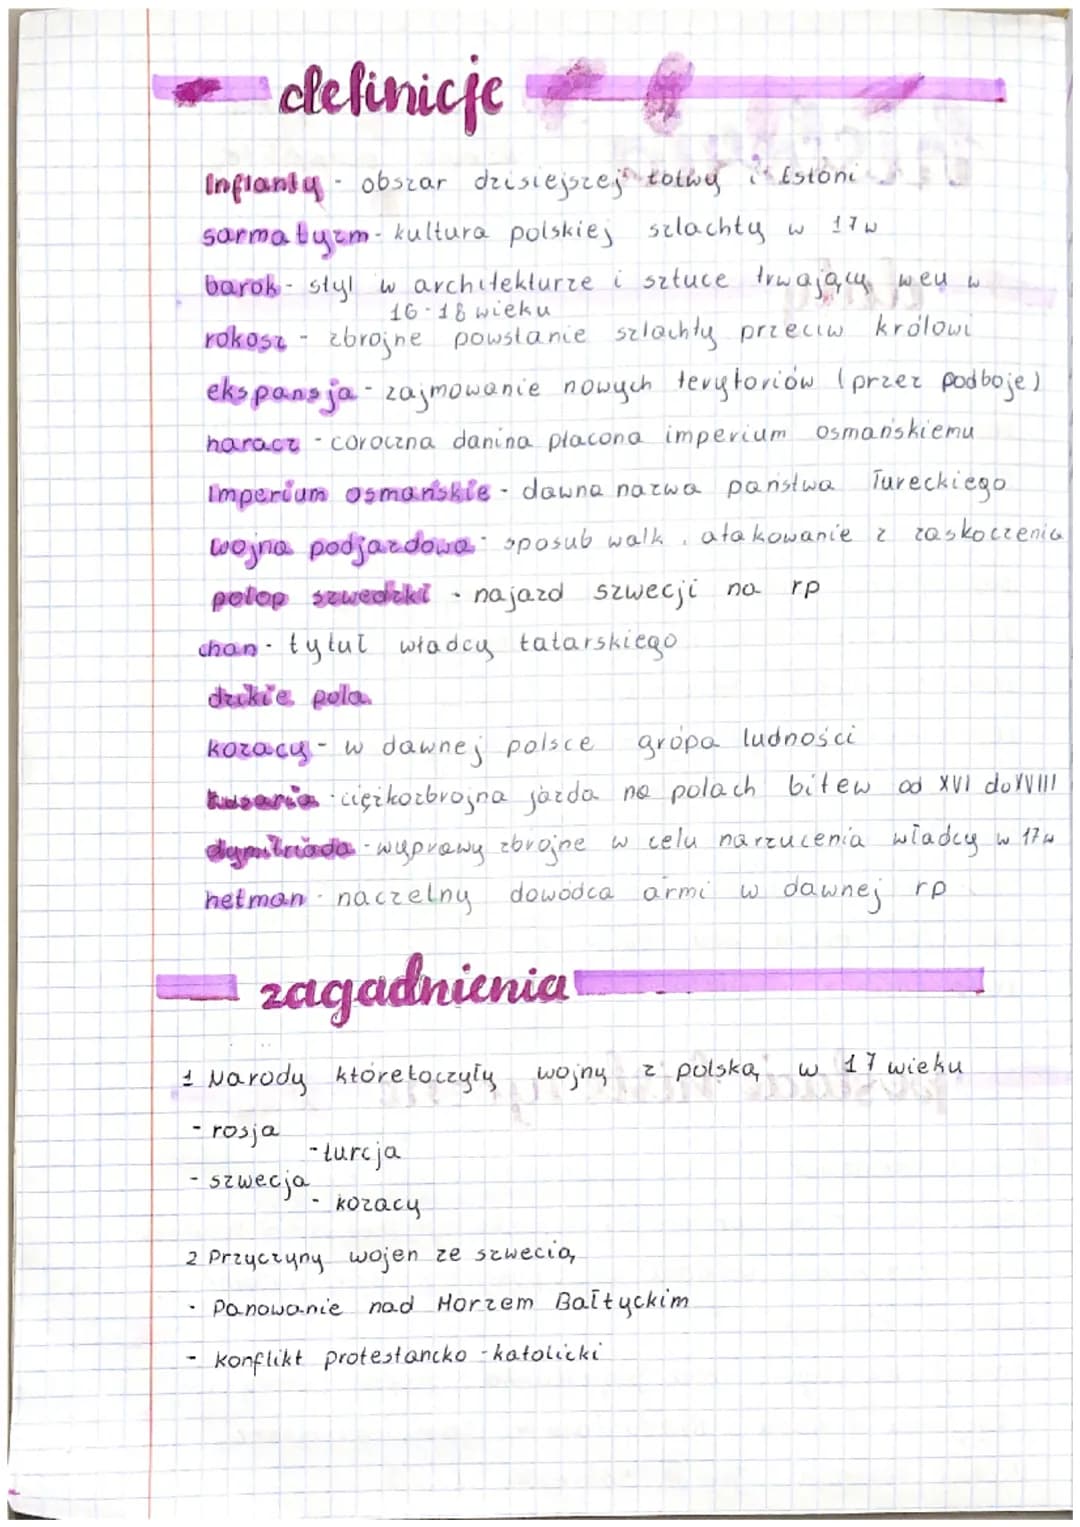 definicje
Inflanty - obszar dzisiejszej łotwy i Estoni
sarmatyzm - kultura polskiej szlachty w 17w
barok - styl w architekturze i sztuce trwający weu w
16-18 wieku
rokosz - zbrojne powstanie szlachty przeciw królowi
ekspansja - zajmowanie nowych terytoriów (przez podboje)
haracz - coroczna danina płacona imperium osmańskiemu
Imperium osmańskie - dawna nazwa państwa Tureckiego
wojna podjazdowa - sposub walk, atakowanie z zaskoczenia
potop szwedzki - najazd szwecji na rp
chan - tytuł władcy tatarskiego
dzikie pola
kozacy - w dawnej polsce grópa ludności
husaria - ciężkozbrojna jazda na polach bitew od XVI do XVIII
dymitriada - wyprawy zbrojne w celu narzucenia władcy w 17w
hetman - naczelny dowódca armi w dawnej rp
zagadnienia
1 Narody które toczyły wojny z polską w 17 wieku
- rosja
- turcja
- szwecja
- kozacy
2 Przyczyny wojen ze szwecią
- Panowanie nad Morzem Bałtyckim
- konflikt protestancko - katolicki